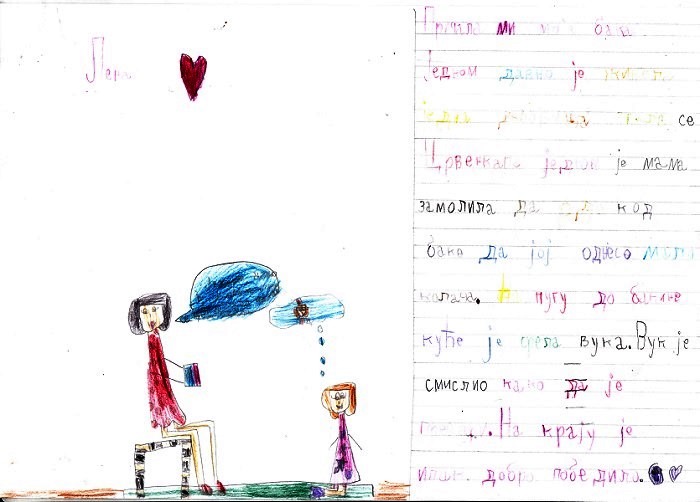 Лена
ми моја бака
једном давно је живела
једна се
Црвенкапа једном је мама
замолила да оде код
баке да јој однесе мало
колача. На путу до бакине
куће је срела вука. Вук је
смислио како да је
На крају је
ипак добро победило.